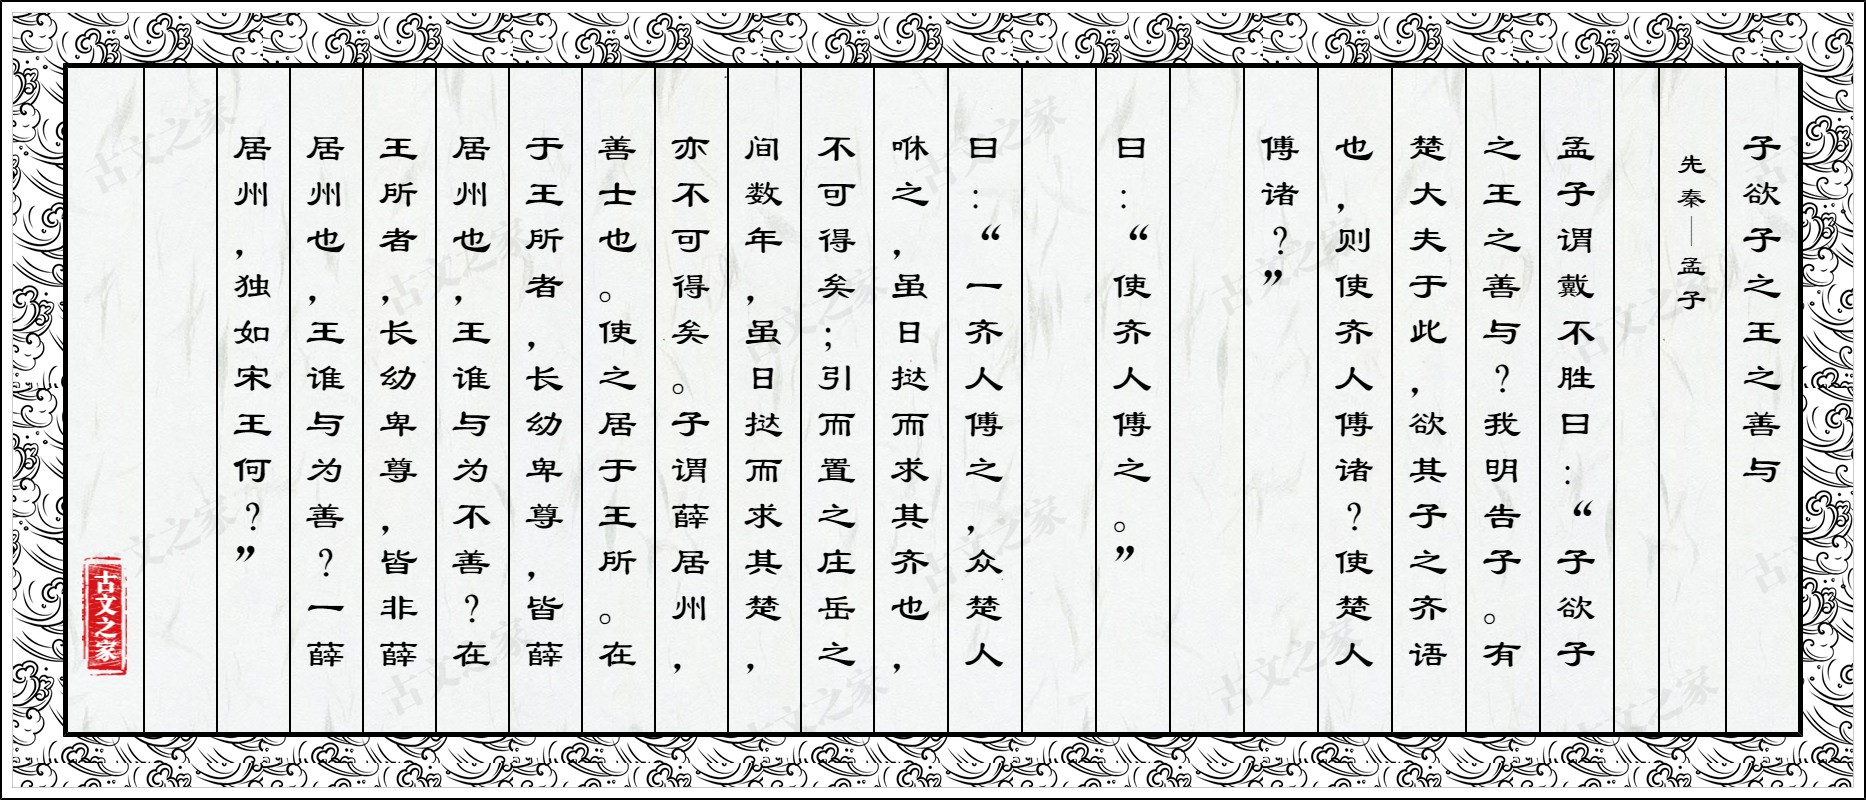 子欲子之王之善与
先秦—孟子
孟子谓戴不胜曰：“子欲子
之王之善与？我明告子。有
楚大夫于此，欲其子之齐语
也，则使齐人傅诸？使楚人
傅诸？”
曰：“使齐人傅之。”
曰：“一齐人傅之，众楚人
咻之，虽日挞而求其齐也，
不可得矣；引而置之庄岳之
间数年，虽日挞而求其楚，
亦不可得矣。子谓薛居州，
善士也。使之居于王所。在
于王所者，长幼卑尊，皆薛
居州也，王谁与为不善？在
王所者，长幼卑尊，皆非薛
居州也，王谁与为善？一薛
居州，独如宋王何？”
古文之家